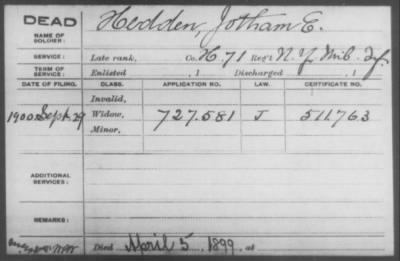 DEAD
NAME OF SOLDIER: Hedden, Jotham E.
SERVICE: Late rank, Co. H. 71 Reg't N.Y. Mil. Inf.
TERM OF SERVICE: Enlisted , 1 Discharged , 1
DATE OF FILING. CLASS. APPLICATION NO. LAW. CERTIFICATE NO.
Invalid,
1900 Sept. 29 Widow, 727.581 J 511763
Minor,
ADDITIONAL SERVICES:
REMARKS:
Died April 5, 1899, at